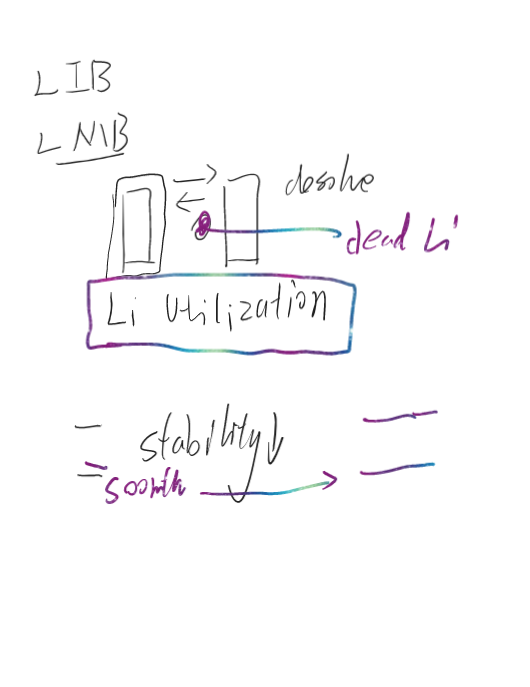 LIB
LNIB
desolve
dead Li
Li Utilization
stability↓